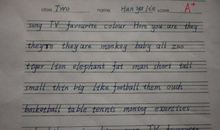 class Two name Han score A+
song TV favourite colour How you are they
they're they are monkey baby all zoo
tiger lion elephant fat man short tall
small thin big like football them ouch
basketball table tennis morning exercises